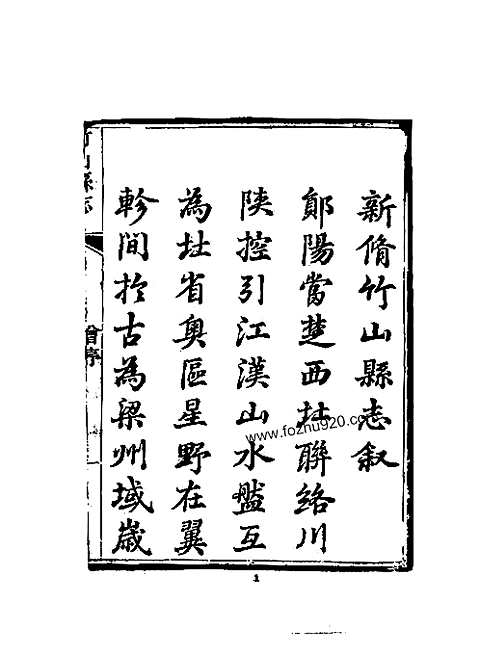 新脩竹山縣志叙
鄖陽當楚西北聯絡川
陝控引江漢山水盤互
為北省奥區星野在翼
軫間扵古為梁州域歲
山縣志
曾序
www.fozhu920.com
1